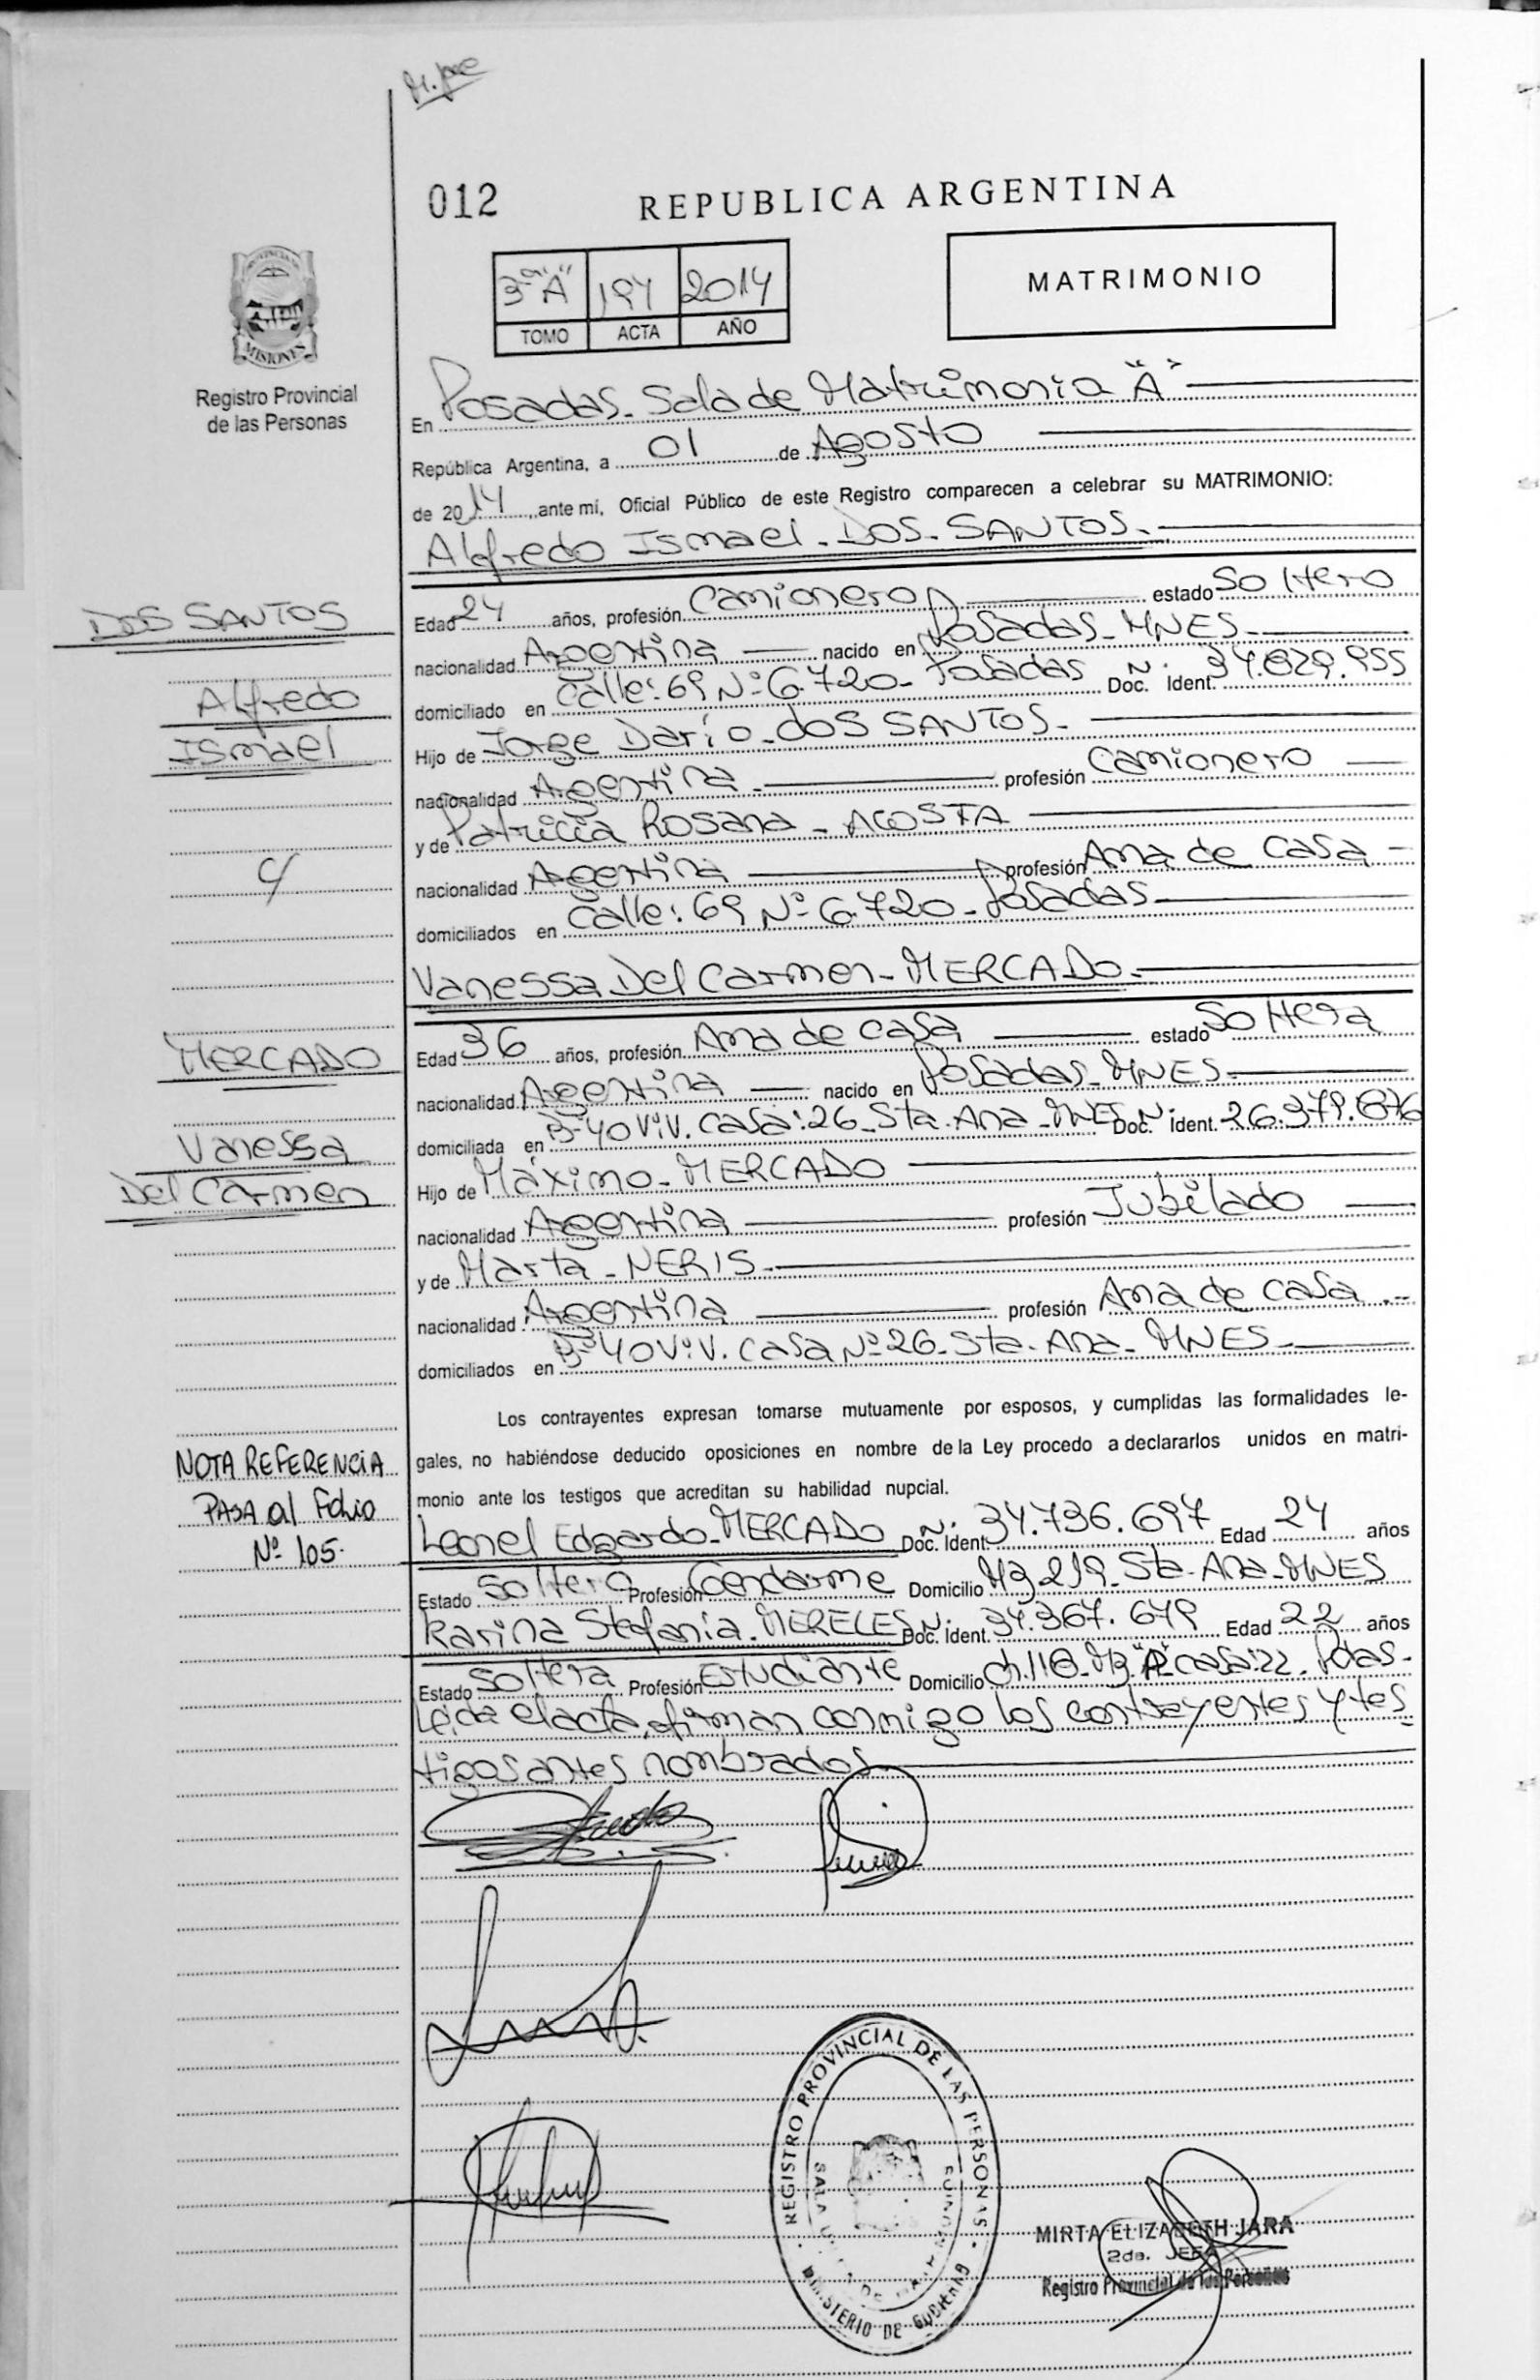 012
REPUBLICA ARGENTINA
3º "A" 194 2014
TOMO ACTA AÑO
MATRIMONIO
MISIONES
Registro Provincial
de las Personas
En Posadas - Sala de Matrimonio "A"
República Argentina, a 01 de Agosto
de 2014, ante mí, Oficial Público de este Registro comparecen a celebrar su MATRIMONIO:
Alfredo Ismael - DOS - SANTOS -
DOS SANTOS
Alfredo
Ismael
c/
MERCADO
Vanessa
Del Carmen
NOTA REFERENCIA
PASA al Folio
Nº 105.
Edad 24 años, profesión Camionero estado Soltero
nacionalidad Argentina nacido en Posadas - MNES -
domiciliado en Calle: 69 Nº 6.720 - Posadas Doc. Nº Ident. 34.829.955
Hijo de Jorge Darío - dos SANTOS -
nacionalidad Argentina - profesión Camionero
y de Patricia Rosana - ACOSTA
nacionalidad Argentina profesión Ama de casa -
domiciliados en Calle: 69 Nº 6.720 - Posadas -
Vanessa Del Carmen - MERCADO -
Edad 36 años, profesión Ama de casa estado Soltera
nacionalidad Argentina nacido en Posadas - MNES -
domiciliada en Bº 40 Viv. Casa: 26 - Sta. Ana - MNES Doc. Nº Ident. 26.379.876
Hijo de Máximo - MERCADO
nacionalidad Argentina profesión Jubilado
y de Marta - NERIS -
nacionalidad Argentina profesión Ama de casa -
domiciliados en Bº 40 Viv. Casa Nº 26 - Sta. Ana - MNES -
Los contrayentes expresan tomarse mutuamente por esposos, y cumplidas las formalidades le-
gales, no habiéndose deducido oposiciones en nombre de la Ley procedo a declararlos unidos en matri-
monio ante los testigos que acreditan su habilidad nupcial.
Leonel Edgardo - MERCADO Doc. Nº Ident. 34.736.697 Edad 24 años
Estado Soltero Profesión Gendarme Domicilio Mz 219 - Sta. Ana - MNES
Karina Stefanía - MERELES Doc. Nº Ident. 37.367.679 Edad 22 años
Estado Soltera Profesión Estudiante Domicilio Ch. 118 - Mz "A" casa: 22 - Pdas -
Leída el acta, firman conmigo los contrayentes y tes-
tigos antes nombrados
REGISTRO PROVINCIAL DE LAS PERSONAS
MINISTERIO DE GOBIERNO
MIRTA ELIZABETH JARA
2da. JEFA
Registro Provincial de las Personas